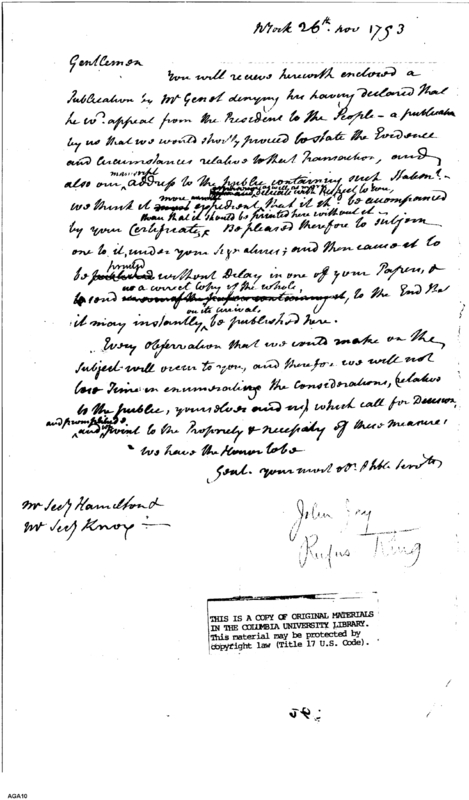 NYork 26th. nov 1793
Gentlemen
You will recieve herewith enclosed a
Publication by Mr Genet denying his having declared that
he wd. appeal from the President to the People – a publication
by us that we would shortly proceed to state the Evidence
and Circumstances relative to that Transaction, and
also our manuscript address to the public containing such Statemt. –
as well as more delicate with Respect to you,
we think it more expedient that it shd. be accompanied
than that it should be printed here without it –
by your Certificate, Be pleased therefore to subjoin
one to it, under your Signatures; and then cause it to
be printed without Delay in one of your Papers, &
to send us a correct Copy of the whole, to the End that
on its arrival
it may instantly be published here.
Every observation that we could make on the
Subject will occur to you, and therefore we will not
lose Time in enumerating the Considerations, (relative
to the public, yourselves and us) which call for Decision
and promptitude,
and point to the Propriety & necessity of these measures
We have the Honor to be
Gent. your most obt. & hble Servts
Mr Secy Hamilton &
Mr Secy Knox
John Jay
Rufus King
THIS IS A COPY OF ORIGINAL MATERIALS
IN THE COLUMBIA UNIVERSITY LIBRARY.
This material may be protected by
copyright law (Title 17 U.S. Code).
AGA10